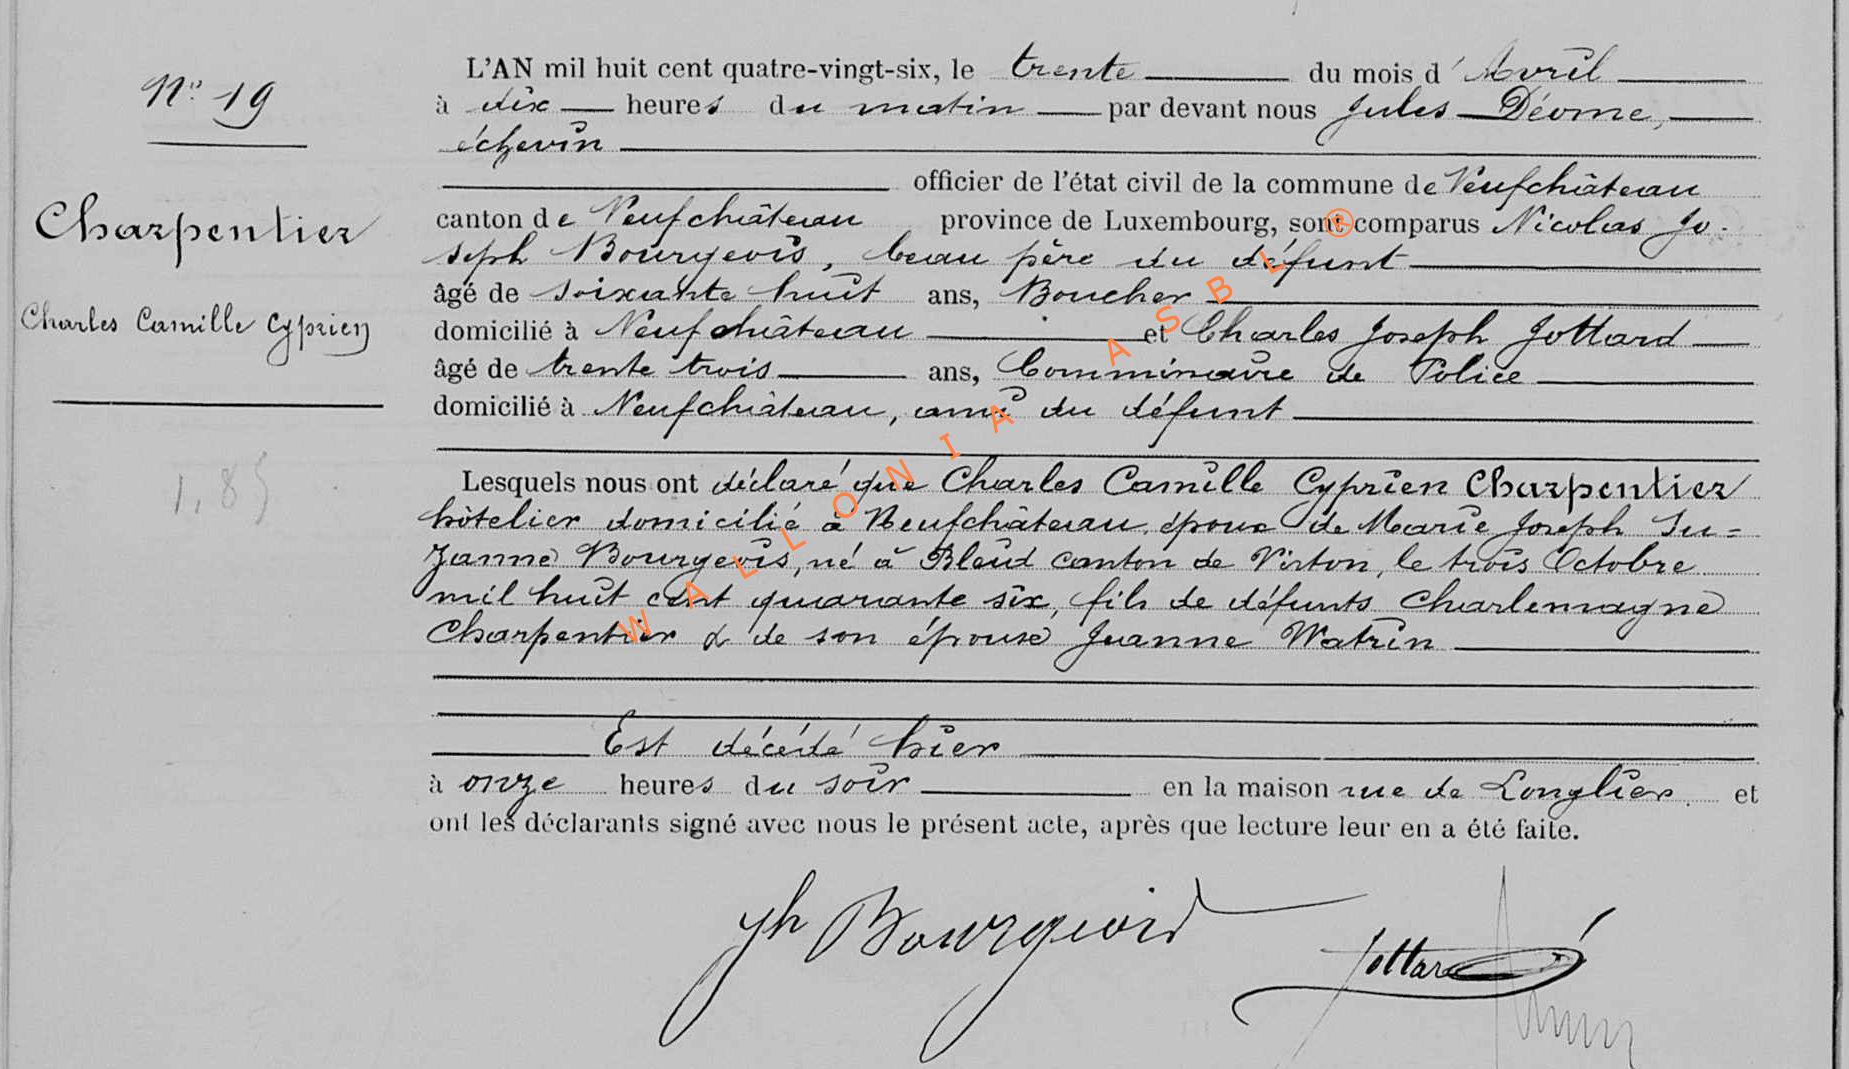 N° 19
Charpentier
Charles Camille Cyprien
1,85
L'AN mil huit cent quatre-vingt-six, le trente du mois d' Avril
à dix heures du matin par devant nous Jules Déome,
échevin
officier de l'état civil de la commune de Neufchâteau
canton de Neufchâteau province de Luxembourg, sont comparus Nicolas Jo-
seph Bourgeois, beau père du défunt
âgé de soixante huit ans, Boucher
domicilié à Neufchâteau et Charles Joseph Jottard
âgé de trente trois ans, Commissaire de Police
domicilié à Neufchâteau, ami du défunt
Lesquels nous ont déclaré que Charles Camille Cyprien Charpentier
hôtelier domicilié à Neufchâteau, époux de Marie Joseph Su=
zanne Bourgeois, né à Bleid canton de Virton, le trois Octobre
mil huit cent quarante six, fils de défunts Charlemagne
Charpentier & de son épouse Jeanne Watrin
Est décédé hier
à onze heures du soir en la maison rue de Longlier et
ont les déclarants signé avec nous le présent acte, après que lecture leur en a été faite.
Jh Bourgeois
Jottard
WALLONIA ASBL ®